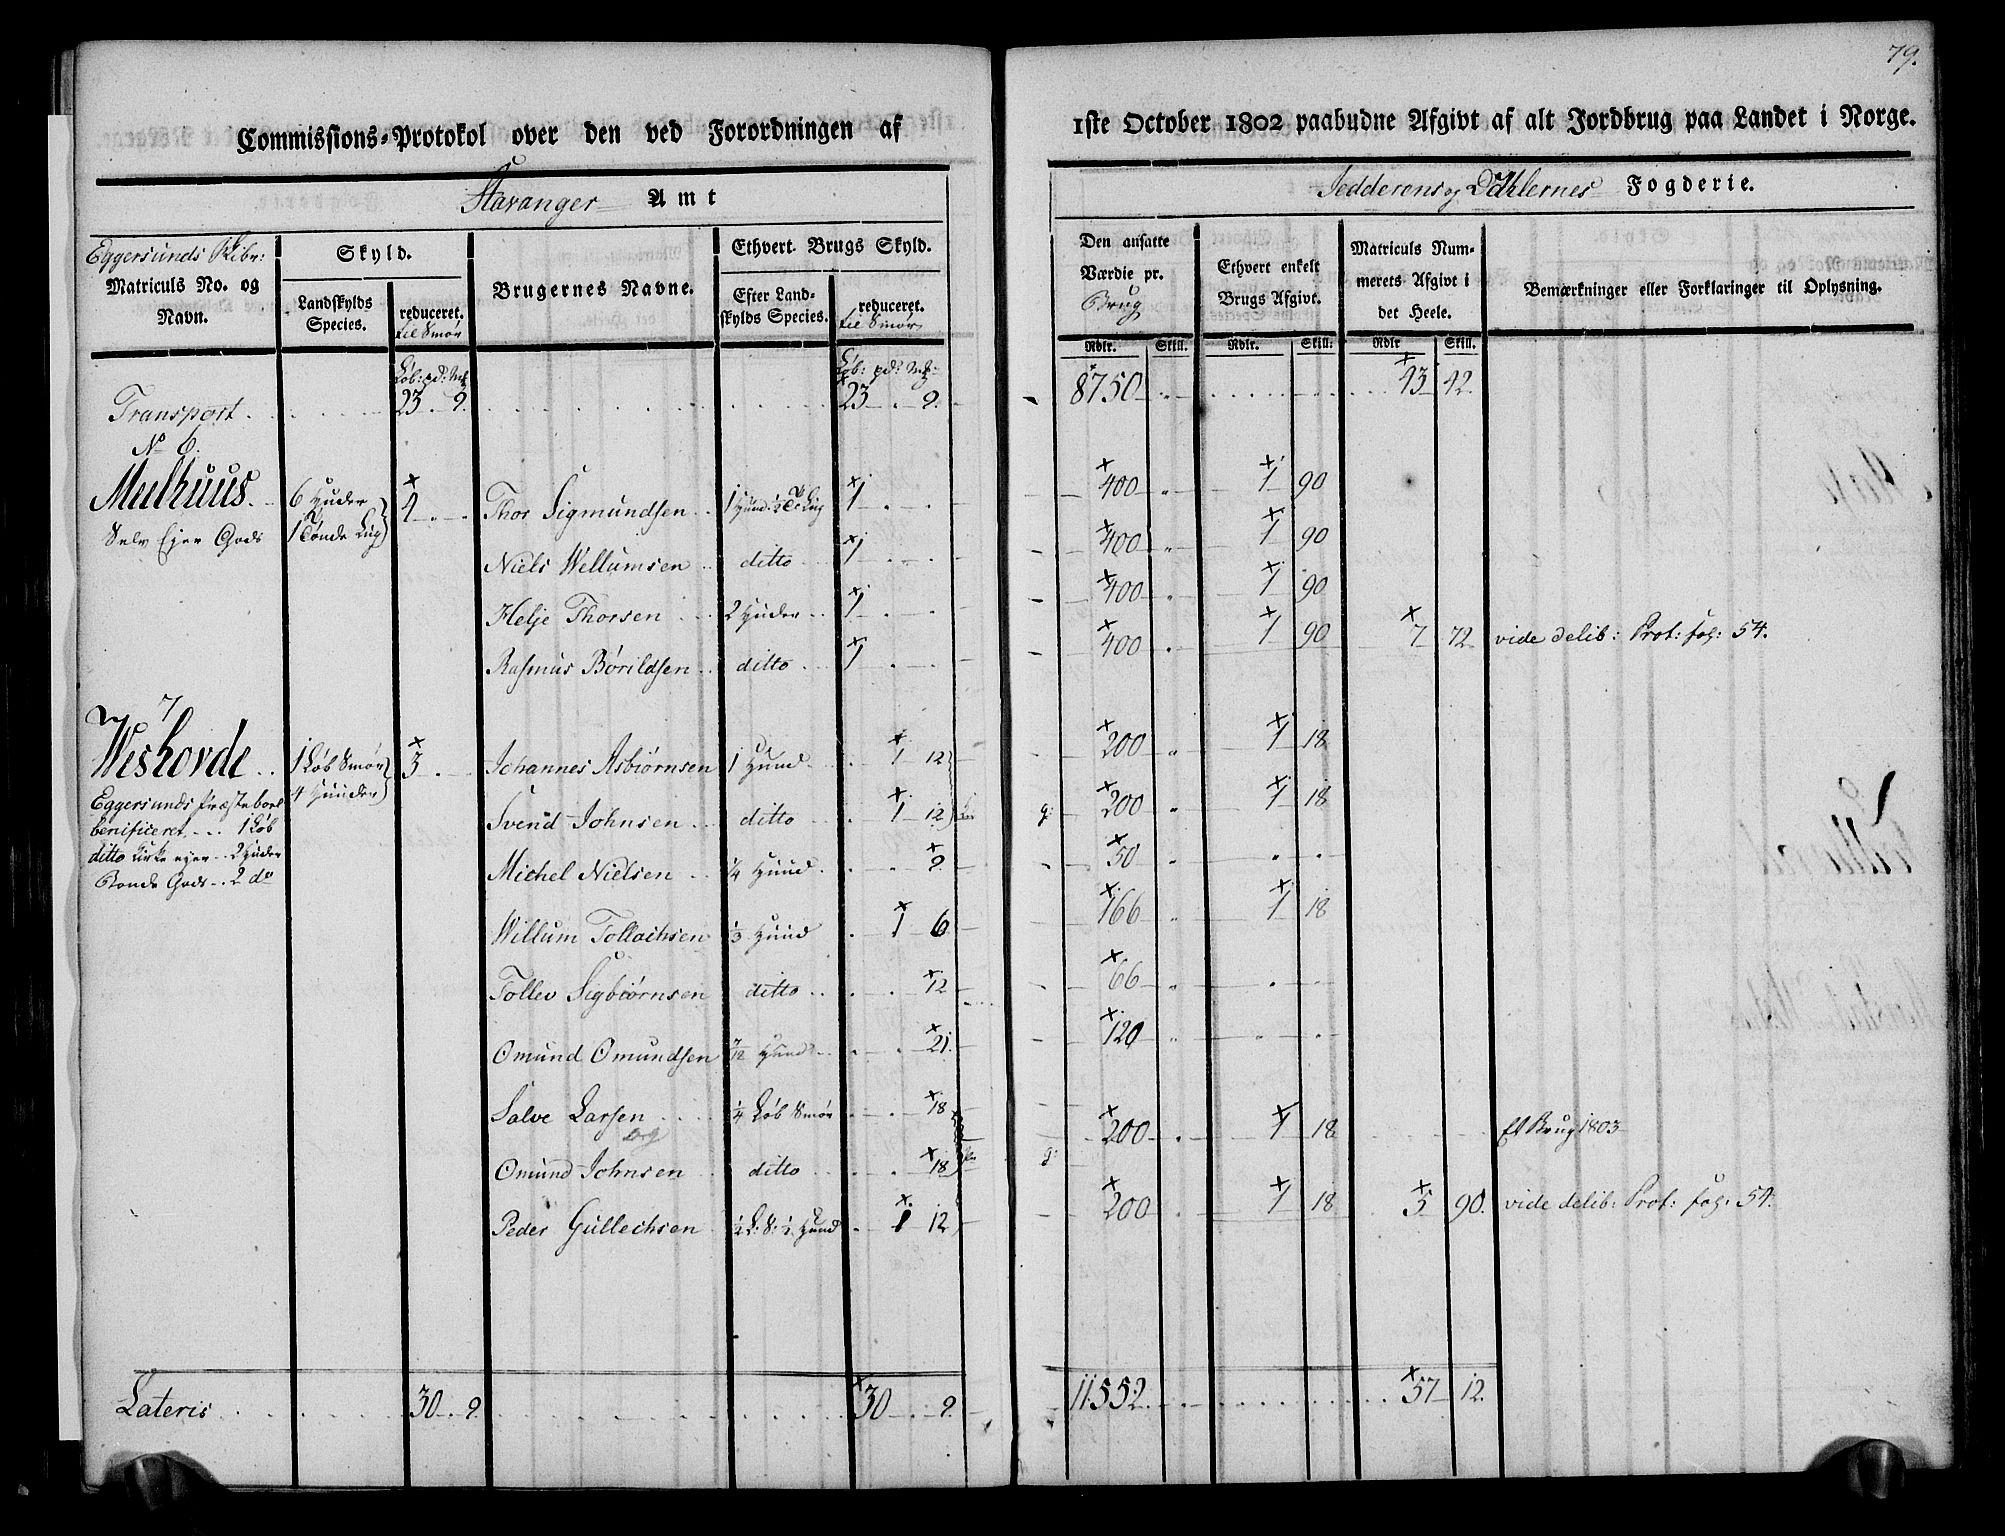 79.
Commissions-Protokol over den ved Forordningen af
1ste October 1802 paabudne Afgivt af alt Jordbrug paa Landet i Norge.
Stavanger Amt
Jedderens og Dahlernes Fogderie.
Eggersunds Skibr:
Matriculs No. og
Navn.
Skyld.
Landskylds
Species.
reduceret.
til Smør
Brugernes Navne.
Ethvert Brugs Skyld.
Efter Land-
skylds Species.
reduceret.
til Smør
Den ansatte
Værdie pr.
Brug
Ethvert enkelt
Brugs Afgivt.
Matriculs Num-
merets Afgivt i
det Heele.
Bemærkninger eller Forklaringer til Oplysning.
Rdlr. Skill. Rdlr. Skill: Rdlr Skill.
Løb: pd: Mk Løb: pd: Mk
Transport . 23 . 9. 23 . 9. 8750 43 42.
No 6.
Mulhuus. 6 Huder 4 Thor Sigmundsen 1 Hund: ½ Lug 1 400 1 90
Selv Ejer Gods 1 Tønde Lug
Niels Wellumsen ditto 1 400 1 90
Helje Thorsen 2 Huder 1 400 1 90
Rasmus Børildsen ditto 1 400 1 90 7 72 vide delib: Prot: fol: 54.
7
Weshovde 1 Løb Smør 3 Johannes Asbiørnsen 1 Huud 1 12 200 1 18
Eggersunds Præstebord 4 Huuder
benificeret 1 Løb Svend Johnsen ditto 1 12 200 1 18
ditto Kirke ejer 2 Huder Michel Nielsen ¼ Huud 9. 50
Bonde Gods 2 do
Willum Tollachsen ⅓ Huud 1 6 166 1 18
Tollev Sigbiørnsen ditto 12 66
Omund Omundsen 7/12 Huud 21. 120
Salve Larsen ¼ Løb Smør 18 200 1 18 Et Brug 1803
og
Omund Johnsen ditto 18
Peder Gullechsen ½ L: S: ½ Huud 1 12 200 1 18 5 90. vide delib: Prot: fol: 54.
Lateris 30 . 9. 30 . 9. 11552 57 12.